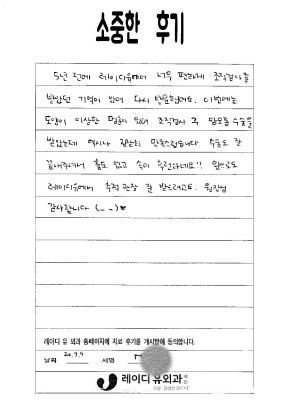 소중한 후기
5년 전에 레이디유에서 너무 편하게 조직검사를
받았던 기억이 있어 다시 방문했어요. 이번에는
모양이 이상한 멍울이 있어 조직검사 후 맘모톰 수술을
받았는데 역시나 굉장히 만족스럽습니다. 수술도 잘
끝내주셔서 흉도 없고 속이 후련하네요!! 앞으로도
레이디유에서 추적관찰 잘 받으려고요. 원장님
감사합니다 (_ _)♥
레이디 유 외과 홈페이지에 치료 후기를 게시함에 동의합니다.
날짜 20.7.9 서명
레이디유외과의원